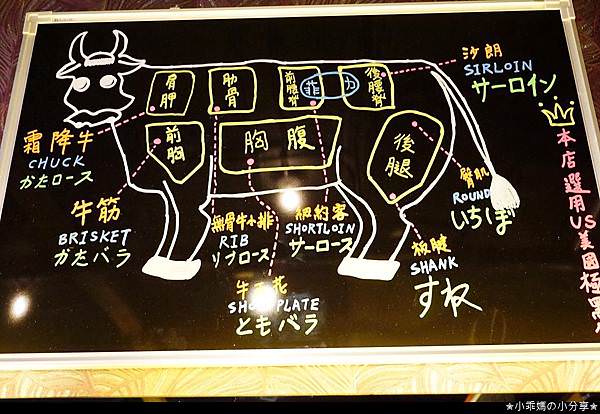 肩胛
肋骨
前腰脊
菲力
後腰脊
前胸
胸腹
後腿
沙朗
SIRLOIN
サーロイン
霜降牛
CHUCK
かたロース
牛筋
BRISKET
かたバラ
無骨牛小排
RIB
リブロース
紐約客
SHORTLOIN
サーロース
牛五花
SHORTPLATE
ともバラ
臀肌
ROUND
いちぼ
板腱
SHANK
すね
本店選用US美國極黑
★小乖媽の小分享★